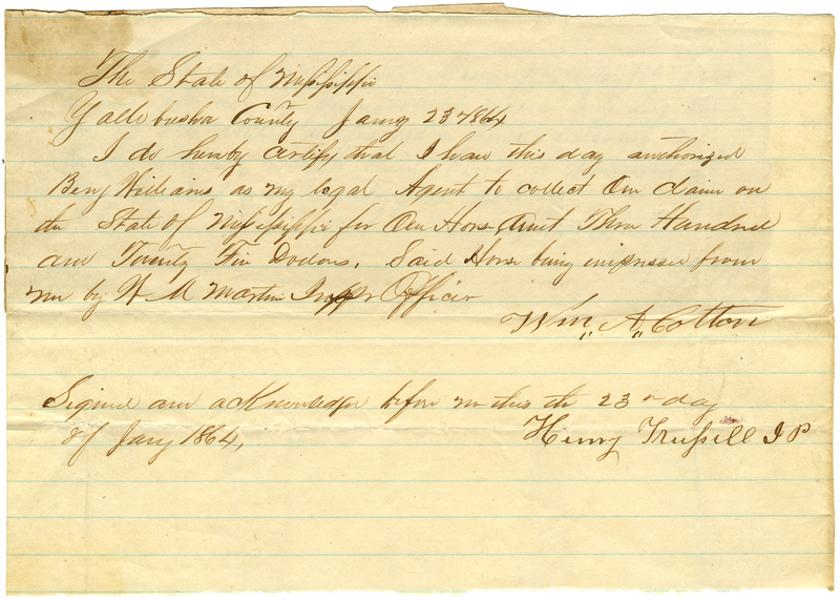 The State of Mississippi
Yallobusha County Jany 23d 1864
I do hereby certify that I have this day authorized
Benj Williams as my legal Agent to collect One claim on
the State of Mississippi for One Horse Amt Three Hundred
and Twenty Five Dollars. Said Horse being impressed from
me by W M Martin Officer
Wm A Cotton
Signed and acknowledged before me this the 23rd day
of Jany 1864,
Henry Trussell J P